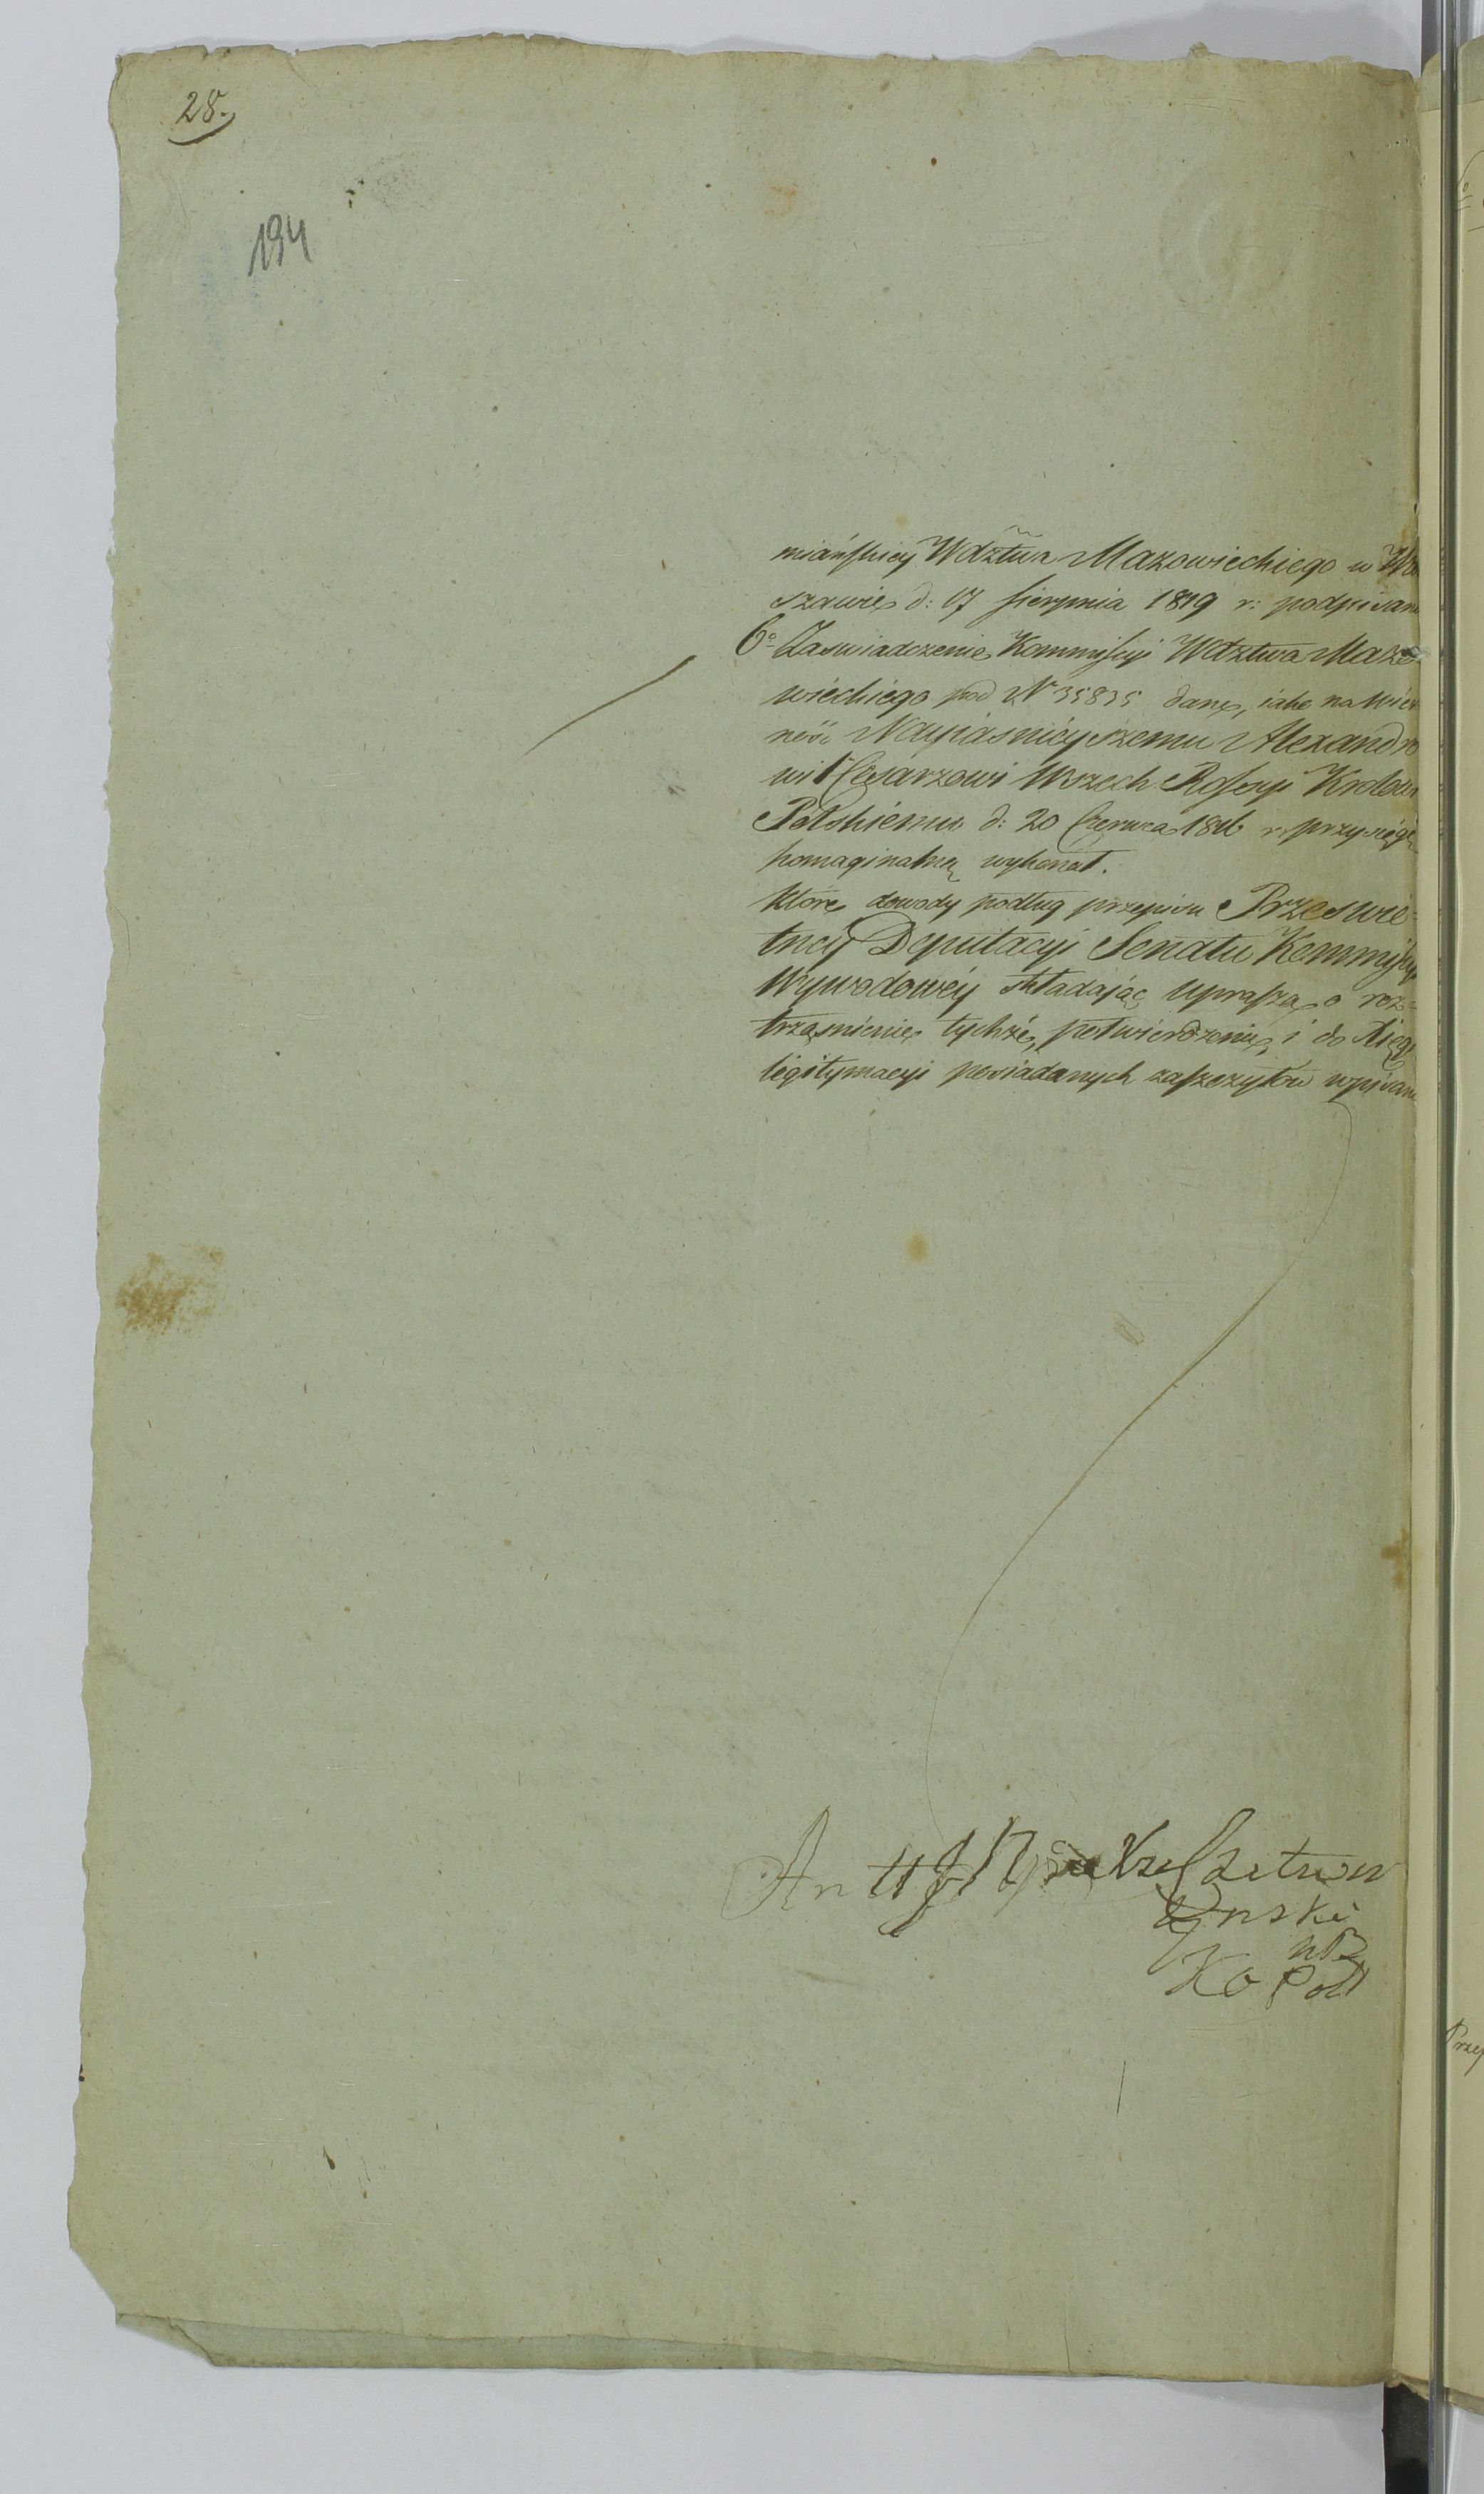 28.
194
miańskiey Wdztwa Mazowieckiego w Wa
szawie d: 17 Sierpnia 1819 r: podpisane
6o Zaswiadczenie Kommissyi Wdztwa Mazo-
wieckiego pod N 35835 dane, iako na Wier
ność Nayiaśnieyszemu Alexandro
wi I Cesarzowi Wszech Rossyi Krolowi
Polskiemu d: 20 Czerwca 1816 r. przysięgę
homagialną wykonał.
Które dowody podług przepisu Przeswie-
tney Deputacyi Senatu Kommissyi
Wywodowéy składaiąc uprasza o roz=
trząśnienie tychże, potwierdzenie, i do Xięgi
legitymacyi posiadanych zaszczytów wpisanie